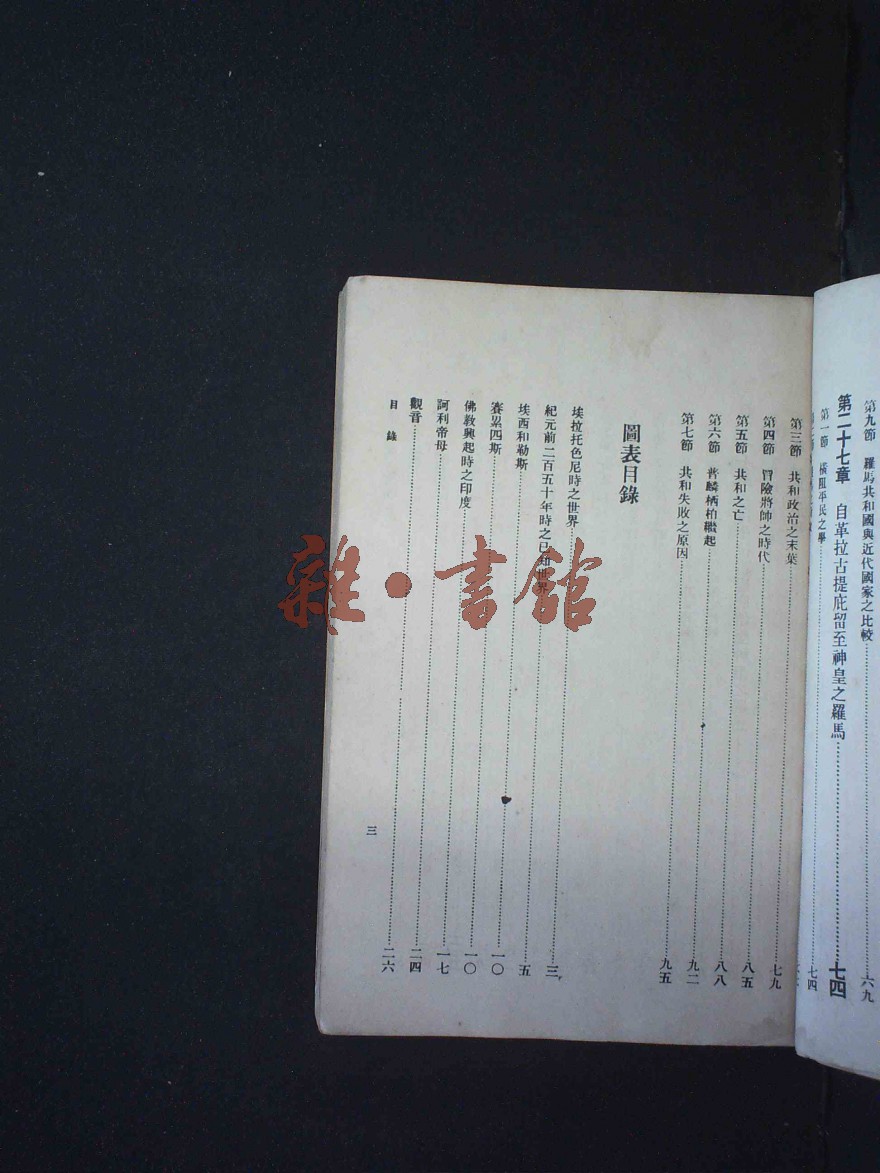 第九節 羅馬共和國與近代國家之比較……六九
第二十七章 自革拉古提庇留至神皇之羅馬……七四
第一節 橫阻平民之舉……七四
第三節 共和政治之末葉……七九
第四節 冒險將帥之時代……八五
第五節 共和之亡……八八
第六節 普麟栖柏繼起……九二
第七節 共和失敗之原因……九五
圖表目錄
埃拉托色尼時之世界……三
紀元前二百五十年時之已知世界……五
埃西和勒斯……一〇
賽累四斯……一〇
佛教興起時之印度……一七
訶利帝母……二四
觀音……二六
目錄
三
雜·書館